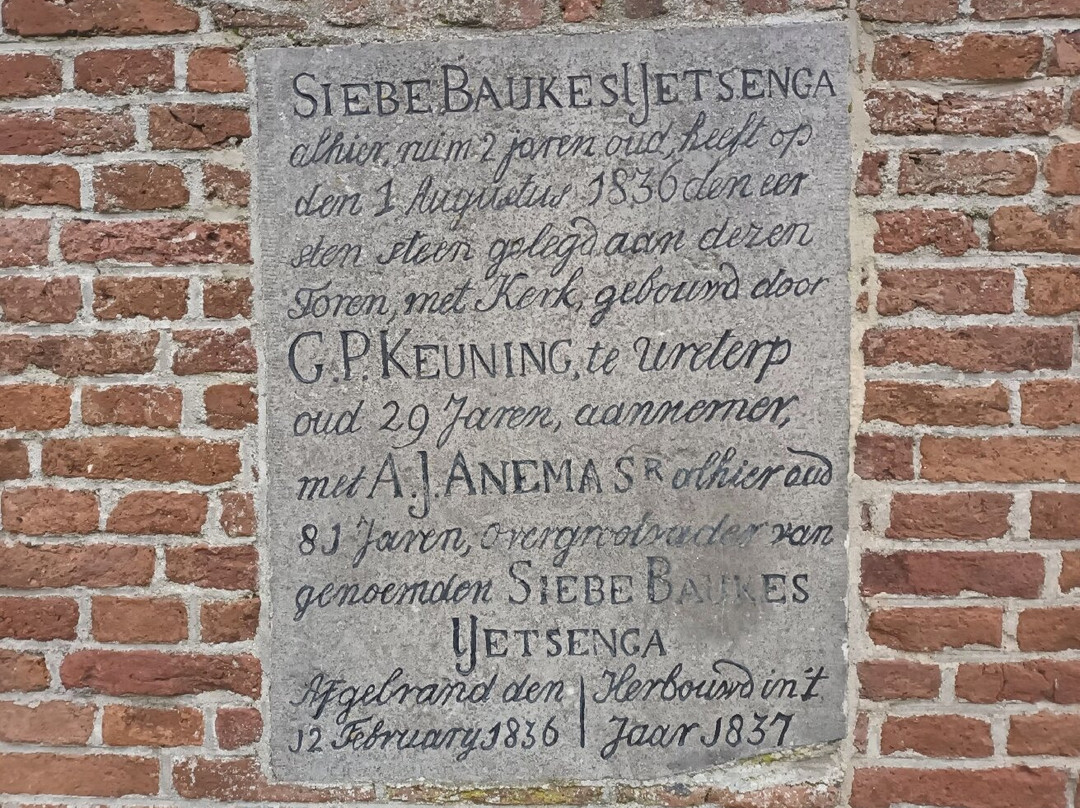 SIEBE BAUKES IJETSENGA
alhier, ruim 2 jaren oud, heeft op
den 1 Augustus 1836 den eer
sten steen gelegd aan dezen
Toren, met Kerk, gebouwd door
G.P. KEUNING, te Ureterp
oud 29 Jaren, aannemer,
met A.J. ANEMA SR alhier oud
81 Jaren, overgrootvader van
genoemden SIEBE BAUKES
IJETSENGA
Afgebrand den | Herbouwd in 't
12 February 1836 | Jaar 1837